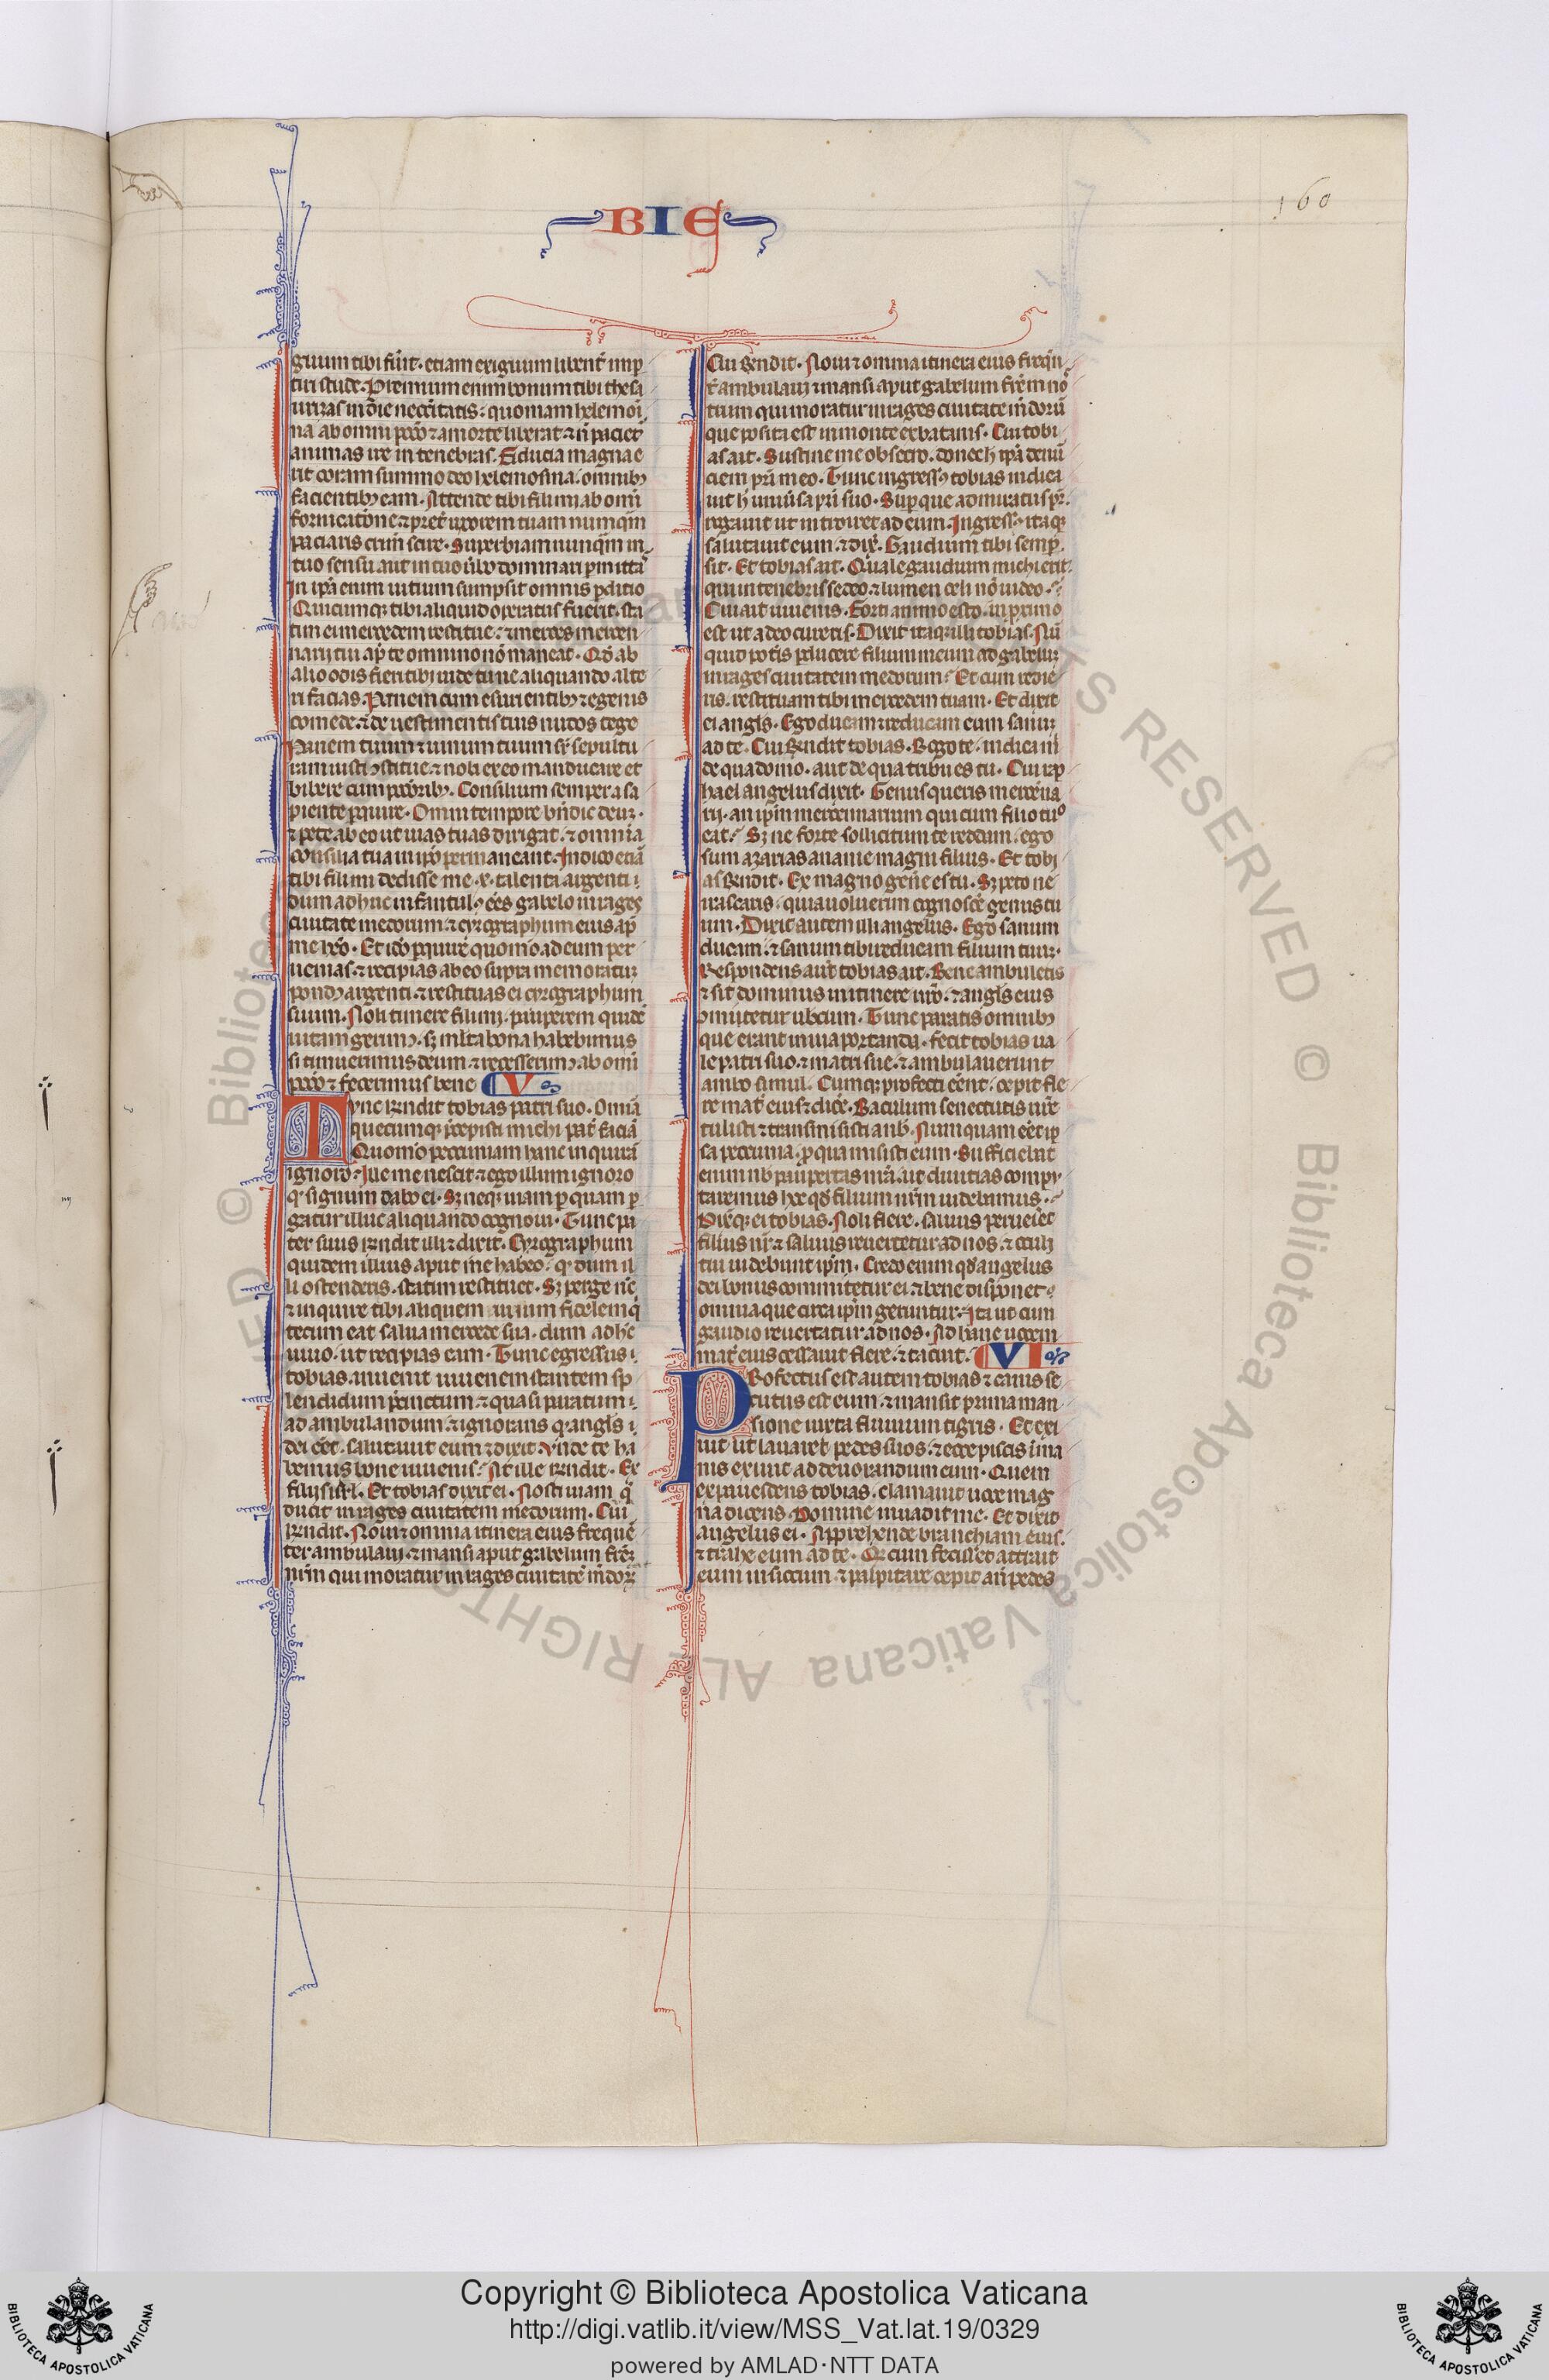 BIE
160
guum tibi fu̾it. etiam exiguum libent̾ imp
tiri stude. Premium enim bonum tibi thesa
urizas in die necc̾itatis: quoniam helemosi
na ab omni pecc̄o ⁊ a morte liberat ⁊ n̄ paciet̄
animas ire in tenebras. Fiducia magna e
rit coram summo deo helemosina. omnibꝰ
facientibꝰ eam. Attende tibi fili mi ab om̄i
fornicatōne ⁊ pret̾ uxorem tuam numqͣm
paciaris crim̄ scire. Superbiam nunqͣm in
tuo sensu aut in tuo ūbo dominari ꝑmittaˢ
In ip̄a enim initium sumpsit omnis ꝑditio
Quicumqꝫ tibi aliquid operatus fuerit. sta
tim ei mercedem restitue. ⁊ merces mercen
narij tui ap̄ te omnino nō maneat. Qd̄ ab
alio odis fieri tibi uide tu ne aliquando alte
ri facias. Panem cum esurientibꝰ ⁊ egenis
comede. ⁊ de uestimentis tuis nudos tege
Panem tuum ⁊ uinum tuum sr̄ sepultu
ram iusti ꝯstitue ⁊ noli ex eo manducare et
bibere cum pecc̄oribꝰ. Consilium semper a sa
piente ꝑquire. Omni tempore bn̄dic deuꝫ.
⁊ pete ab eo ut uias tuas dirigat. ⁊ omnia
consilia tua in ip̄o permaneant. Indico etiā
tibi fili mi dedisse me .x. talenta argenti
dum adhuc infantulꝰ eēs gabelo in rages
ciuitate medorum ⁊ cyrographum eius ap̄
me heo. Et ideo ꝑquire quomō ad eum per
uenias. ⁊ recipias ab eo supra memoratuꝫ
pondꝰ argenti. ⁊ restituas ei cyrographum
suum. Noli timere fili mi. pauperem quidē
uitam gerimꝰ. sꝫ multa bona habebimus
si timuerimus deum ⁊ recesserimꝰ ab om̄i
pecc̄o ⁊ fecerimus bene V
Tunc rn̄dit tobias patri suo. Omīa
quecumqꝫ p̄cepisti michi pat̾ faciā
Quomō pecuniam hanc inquirā
ignoro. Ille me nescit. ⁊ ego illum ignoro
qͥ signum dabo ei. Sꝫ neqꝫ uiam ꝑ quam ꝑ
gatur illuc aliquando cognoui. Tunc pa
ter suus rn̄dit illi ⁊ dixit. Cyrographum
quidem illius aput me habeo. qͥ dum il
li ostenderis. statim restituet. Sꝫ perge nc̄
⁊ inquire tibi aliquem uirum fidelem qͥ
tecum eat salua mercede sua. dum adhc̄
uiuo. ut recipias eam. Tunc egressus
tobias. inuenit iuuenem stantem sp
lendidum p̄cinctum ⁊ quasi paratum
ad ambulandum. ⁊ ignorans qͥ angl̄s
dei eēt. salutauit eum ⁊ dixit. Vnde te ha
bemus bone iuuenis. At ille rn̄dit. Ex
filijs isrl̄. Et tobias dixit ei. Nosti uiam qͥ
ducit in rages ciuitatem medorum. Cui
rn̄dit. Noui ⁊ omnia itinera eius frequē
ter ambulaui. ⁊ mansi aput gabelum fr̄eꝫ
nr̄m qui moratur in rages ciuitate medorꝫ
Cui rn̄dit. Noui ⁊ omnia itinera eius freqͥn
t̾ ambulaui ⁊ mansi aput gabelum fr̄em nō
trum qui moratur in rages ciuitate medorū
que posita est in monte exbatanis. Cui tobi
as ait. Sustine me obsecro. donec h ip̄a denū
ciem pr̄i meo. Tunc ingressꝰ tobias indica
uit h uniūsa pr̄i suo. Sup̄ que admiratus pr̄.
rogauit ut introiret ad eum. Ingressꝰ itaqꝫ
salutauit eum. ⁊ dix̄. Gaudium tibi semp̄
sit. Et tobias ait. Quale gaudium michi erit.
qui in tenebris sedeo. ⁊ lumen celi nō uideo.
Cui ait iuuenis. Forti animo esto. in proximo
est ut a deo cureris. Dixit itaqꝫ illi tobias. Nū
quid potis ꝑducere filium meum ad gabeluꝫ
in rages ciuitatem medorum. Et cum redie
ris. restituam tibi mercedem tuam. Et dixit
ei angl̄s. Ego ducam ⁊ reducam eum sanuꝫ
ad te. Cui rn̄dit tobias. Rogo te. indica m̄
de qua domo. aut de qua tribu es tu. Cui rap
hael angelus dixit. Genus queris mercena
rij. an ip̄m mercennarium qui cum filio tuᵒ
eat. Sꝫ ne forte sollicitum te reddam. ego
sum azarias ananie magni filius. Et tobi
as rn̄dit. Ex magno gen̄e es tu. Sꝫ peto ne
irascaris. quia uoluerim cognosc̄e genus tu
um. Dixit autem illi angelus. Ego sanum
ducam. ⁊ sanum tibi reducam filium tuuꝫ.
Respondens aut̄ tobias ait. Bene ambuletis
⁊ sit dominus in itinere ur̄o. ⁊ angl̄s eius
ꝯmitetur uobcum. Tunc paratis omnibꝰ
que erant in uia portanda. fecit tobias ua
le patri suo. ⁊ matri sue. ⁊ ambulauerunt
ambo simul. Cumqꝫ profecti eēnt. cepit fle
re mat̾ eius ⁊ dic̄e. Baculum senectutis nr̄e
tulisti ⁊ transmisisti a nob̄. Numquam eēt ip̄
sa pecunia. ꝓ qua misisti eum. Sufficiebat
enim nob̄ paupertas nr̄a. ut diuitias compu
taremus hoc qd̄ filium nr̄m uidebamus.
Dixitqꝫ ei tobias. Noli flere. saluus perueīet
filius nr̄. ⁊ saluus reuertetur ad nos. ⁊ oculi
tui uidebunt ip̄m. Credo enim qd̄ angelus
dei bonus comitetur ei. ⁊ bene disponet
omnia que circa ip̄m geruntur. Ita ut cum
gaudio reuertatur ad nos. Ad hanc uocem
mat̾ eius cessauit flere. ⁊ tacuit. VI
PRofectus est autem tobias ⁊ canis se
cutus est eum. ⁊ mansit prima man
sione iuxta fluuium tigris. Et exi
uit ut lauaret pedes suos. ⁊ ecce piscis ima
nis exiuit ad deuorandum eum. Quem
expauescens tobias. clamauit uoce mag
na dicens. Domine inuadit me. Et dixit
angelus ei. Apprehende branchiam eius.
⁊ trahe eum ad te. Qd̄ cum fecisset attraxit
eum in siccum ⁊ palpitare cepit an̄ pedes
© Biblioteca Apostolica Vaticana ALL RIGHTS RESERVED
Copyright © Biblioteca Apostolica Vaticana
http://digi.vatlib.it/view/MSS_Vat.lat.19/0329
powered by AMLAD·NTT DATA
BIBLIOTECA APOSTOLICA VATICANA
BIBLIOTECA APOSTOLICA VATICANA